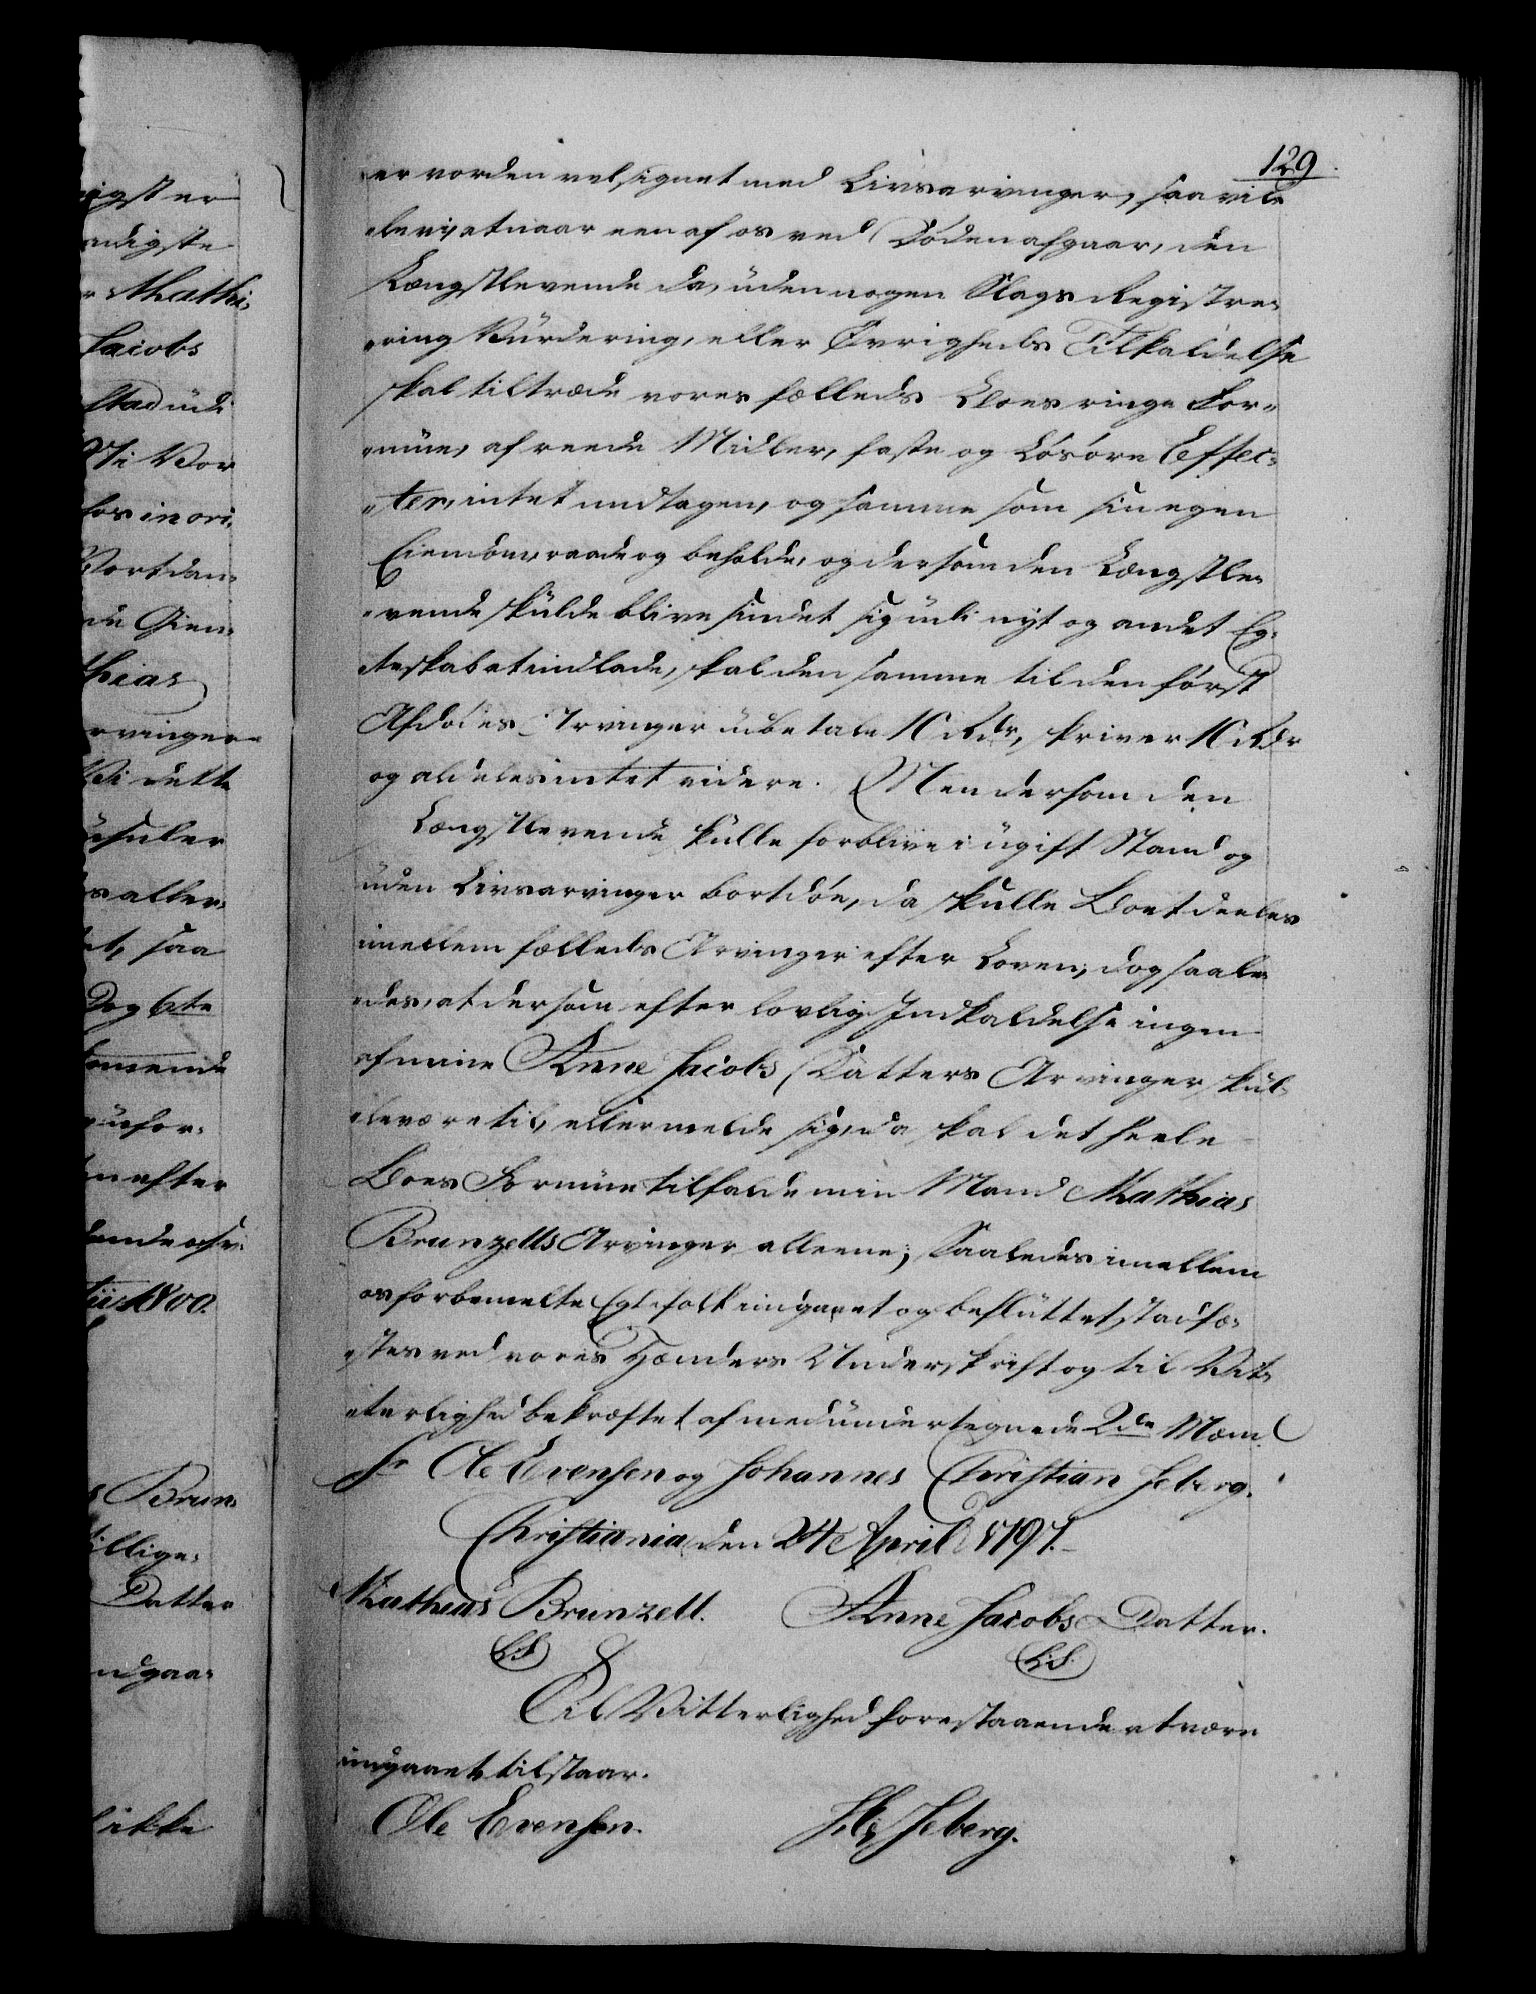 129
er vorden velsignet med Livsarvinger, saa vile
at naar een af os ved Døden afgaar, den
Længstlevende da, uden nogen Slags Registre,
„ring Vurdering, eller Øvrigheds Tilkaldelse
skal tiltræde vores fælleds Boes ringe For„
„mue, af reede Midler, faste og Løsøre Effec„
„ter, intet undtagen, og samme som sin egen
Eiendom, raade og beholde, og dersom den Længstle„
„vende skulde blive sindet sig udi nyt og andet Eg„
„teskab at indlade, skal den samme til den først
Afdødes Arvinger udbetale 10 Rdr, skriver 10 Rdr
og aldeles intet videre. Men dersom den
Længstlevende skulle forblive i ugift Stand og
uden Livsarvinger bortdøe, da skulle Boet deeles
imellem fælleds Arvinger efter Loven, dog saale„
„des, at dersom efter lovlig Indkaldelse ingen
af mine Anne Jacobs Datters Arvinger skul„
„le være til, eller melde sig, da skal det heele
Boes Formue tilfalde min Mand Mathias
Brunzells Arvinger alleene; Saaledes imellem
os forbemelte Egtefolk indgaaet og besluttet, stadfæ„
„stes ved vores Hænders Underskrift og til Vit„
„terlighed bekræftet af medundertegnede 2de Mænd
Sr Ole Evensen og Johannes Christian Seberg.
Christiania den 24 April 1797.
Mathias Brunzell. Anne Jacobs Datter.
LS LS.
Til Vitterlighed forestaaende at være
indgaaet, tilstaar.
Ole Evensen. Seberg.
igst er
Mathi„
Jacobs
stad udi
Vi Vor
hos in ori„
Bortdøe„
thias
rvinger
Vi dette
aller„
et, saa
Dog bte
efter
1800.
Brun„
illige„
Datter
ndgaa„
ikke